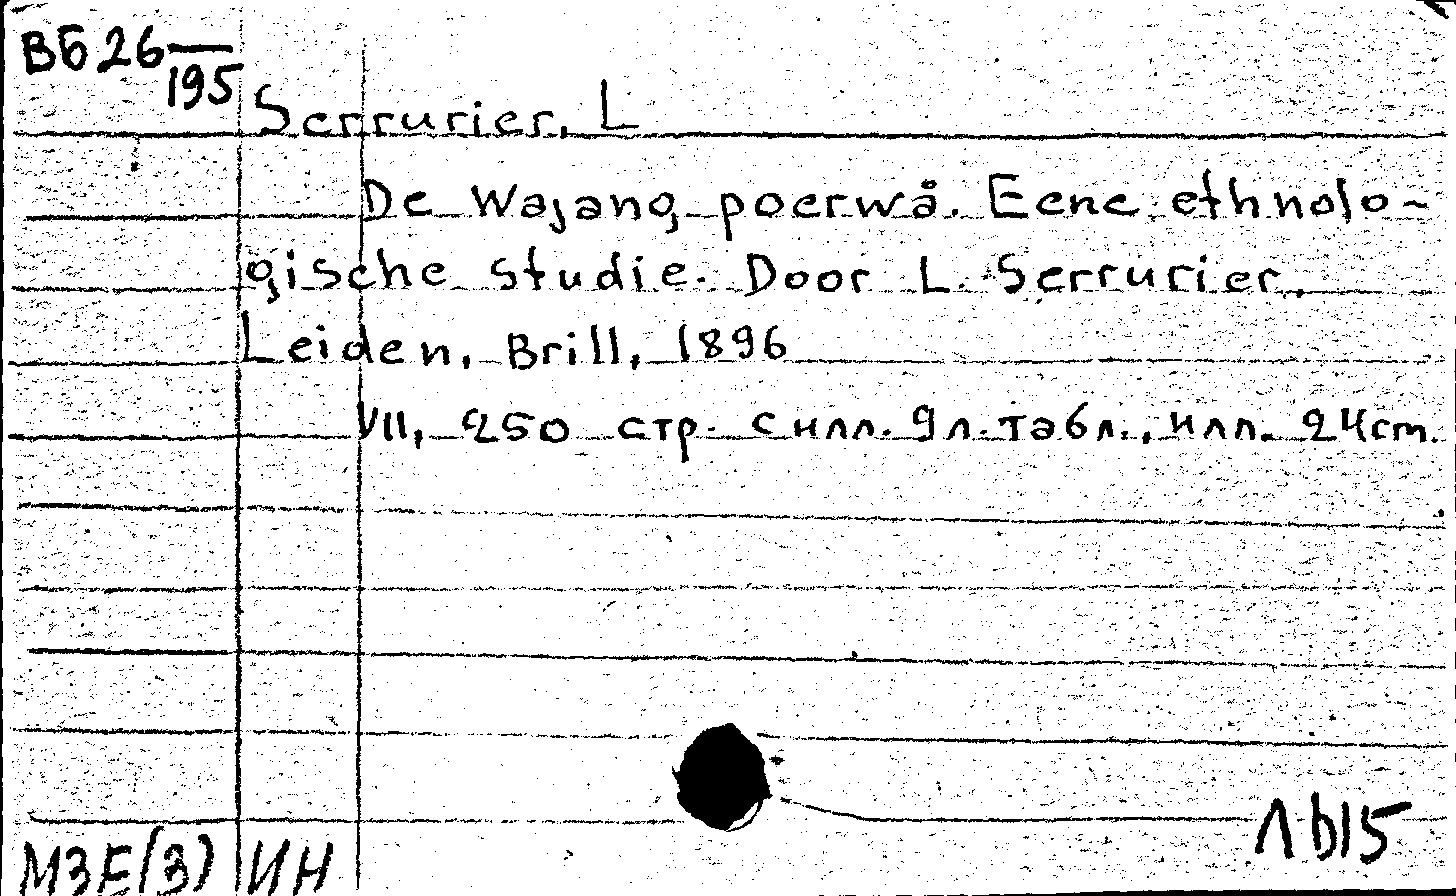 ВБ 26—
195
Serrurier, L
De Wajang poerwå. Eene ethnolo-
gische studie. Door L. Serrurier.
Leiden, Brill, 1896
VII, 250 стр. с илл. 9 л. табл., илл. 24 cm.
ЛЬ15
МЗЕ(3) ИН